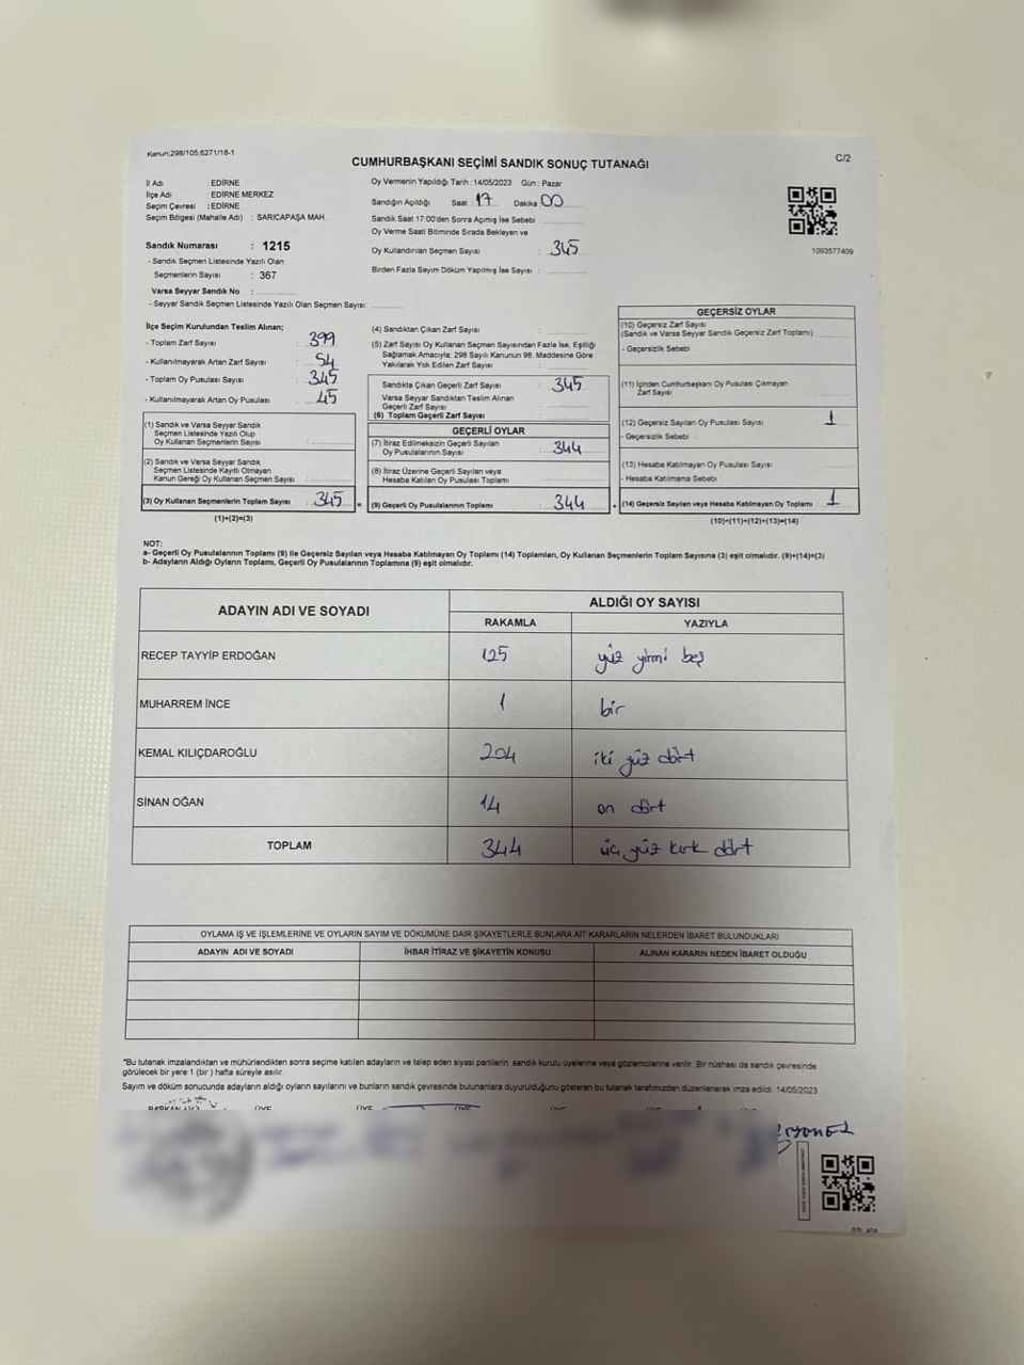 Kanun:298/105;6271/18-1
C/2
CUMHURBAŞKANI SEÇİMİ SANDIK SONUÇ TUTANAĞI
İl Adı : EDİRNE
İlçe Adı : EDİRNE MERKEZ
Seçim Çevresi : EDİRNE
Seçim Bölgesi (Mahalle Adı) : SARICAPAŞA MAH.
Sandık Numarası : 1215
- Sandık Seçmen Listesinde Yazılı Olan
Seçmenlerin Sayısı : 367
Varsa Seyyar Sandık No :
- Seyyar Sandık Seçmen Listesinde Yazılı Olan Seçmen Sayısı:
Oy Vermenin Yapıldığı Tarih : 14/05/2023 Gün : Pazar
Sandığın Açıldığı Saat : 17 Dakika 00
Sandık Saat 17:00'den Sonra Açılmış İse Sebebi
Oy Verme Saati Bitiminde Sırada Bekleyen ve
Oy Kullandırılan Seçmen Sayısı : 345
Birden Fazla Sayım Döküm Yapılmış İse Sayısı :
1093577409
İlçe Seçim Kurulundan Teslim Alınan;
- Toplam Zarf Sayısı : 399
- Kullanılmayarak Artan Zarf Sayısı : 54
- Toplam Oy Pusulası Sayısı : 345
- Kullanılmayarak Artan Oy Pusulası : 45
(1) Sandık ve Varsa Seyyar Sandık
Seçmen Listesinde Yazılı Olup
Oy Kullanan Seçmenlerin Sayısı
(2) Sandık ve Varsa Seyyar Sandık
Seçmen Listesinde Kayıtlı Olmayan
Kanun Gereği Oy Kullanan Seçmen Sayısı
(3) Oy Kullanan Seçmenlerin Toplam Sayısı : 345
(1)+(2)=(3)
(4) Sandıktan Çıkan Zarf Sayısı
(5) Zarf Sayısı Oy Kullanan Seçmen Sayısından Fazla İse, Eşitliği
Sağlamak Amacıyla; 298 Sayılı Kanunun 98. Maddesine Göre
Yakılarak Yok Edilen Zarf Sayısı
Sandıkta Çıkan Geçerli Zarf Sayısı : 345
Varsa Seyyar Sandıktan Teslim Alınan
Geçerli Zarf Sayısı
(6) Toplam Geçerli Zarf Sayısı
GEÇERLİ OYLAR
(7) İtiraz Edilmeksizin Geçerli Sayılan
Oy Pusulalarının Sayısı : 344
(8) İtiraz Üzerine Geçerli Sayılan veya
Hesaba Katılan Oy Pusulaları Toplamı
(9) Geçerli Oy Pusulalarının Toplamı : 344
GEÇERSİZ OYLAR
(10) Geçersiz Zarf Sayısı
(Sandık ve Varsa Seyyar Sandık Geçersiz Zarf Toplamı)
- Geçersizlik Sebebi
(11) İçinden Cumhurbaşkanı Oy Pusulası Çıkmayan
Zarf Sayısı
(12) Geçersiz Sayılan Oy Pusulası Sayısı : 1
- Geçersizlik Sebebi
(13) Hesaba Katılmayan Oy Pusulası Sayısı
- Hesaba Katılmama Sebebi
(14) Geçersiz Sayılan veya Hesaba Katılmayan Oy Toplamı : 1
(10)+(11)+(12)+(13)=(14)
NOT:
a- Geçerli Oy Pusulalarının Toplamı (9) ile Geçersiz Sayılan veya Hesaba Katılmayan Oy Toplamı (14) Toplamları, Oy Kullanan Seçmenlerin Toplam Sayısına (3) eşit olmalıdır. (9)+(14)=(3)
b- Adayların Aldığı Oyların Toplamı, Geçerli Oy Pusulalarının Toplamına (9) eşit olmalıdır.
ADAYIN ADI VE SOYADI ALDIĞI OY SAYISI
RAKAMLA YAZIYLA
RECEP TAYYİP ERDOĞAN 125 yüz yirmi beş
MUHARREM İNCE 1 bir
KEMAL KILIÇDAROĞLU 204 iki yüz dört
SİNAN OĞAN 14 on dört
TOPLAM 344 üç yüz kırk dört
OYLAMA İŞ VE İŞLEMLERİNE VE OYLARIN SAYIM VE DÖKÜMÜNE DAİR ŞİKAYETLERLE BUNLARA AİT KARARLARIN NELERDEN İBARET BULUNDUKLARI
ADAYIN ADI VE SOYADI İHBAR İTİRAZ VE ŞİKAYETİN KONUSU ALINAN KARARIN NEDEN İBARET OLDUĞU
*Bu tutanak imzalandıktan ve mühürlendikten sonra seçime katılan adayların ve talep eden siyasi partilerin, sandık kurulu üyelerine veya gözlemcilerine verilir. Bir nüshası da sandık çevresinde
görülecek bir yere 1 (bir) hafta süreyle asılır.
Sayım ve döküm sonucunda adayların aldığı oyların sayılarını ve bunların sandık çevresinde bulunanlara duyurulduğunu gösteren bu tutanak tarafımızdan düzenlenerek imza edildi. 14/05/2023